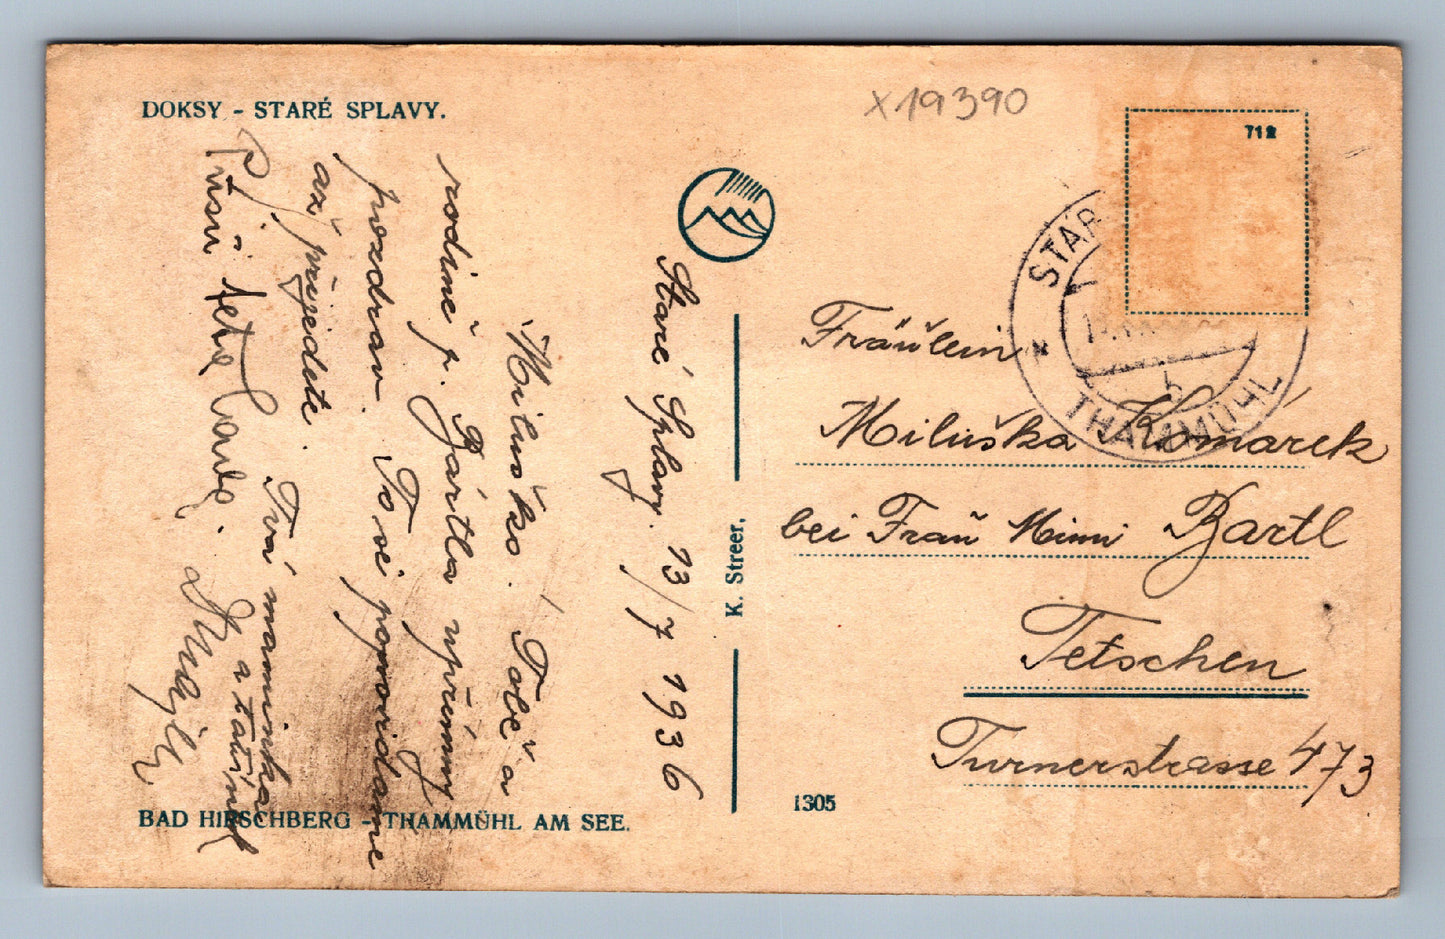 DOKSY - STARÉ SPLAVY.
x19390
712
STAR
THAMMÜHL
b
Staré Splavy. 13/7 1936
Miluško! Tobě a
rodině p. Bártla upřímný
pozdrav. To si popovídáme
až přijedete. Tvá maminka
a tatínek
Fräulein
Miluška Komárek
bei Frau Mimi Bartl
Tetschen
Turnerstrasse 473
K. Streer.
1305
BAD HIRSCHBERG - THAMMÜHL AM SEE.